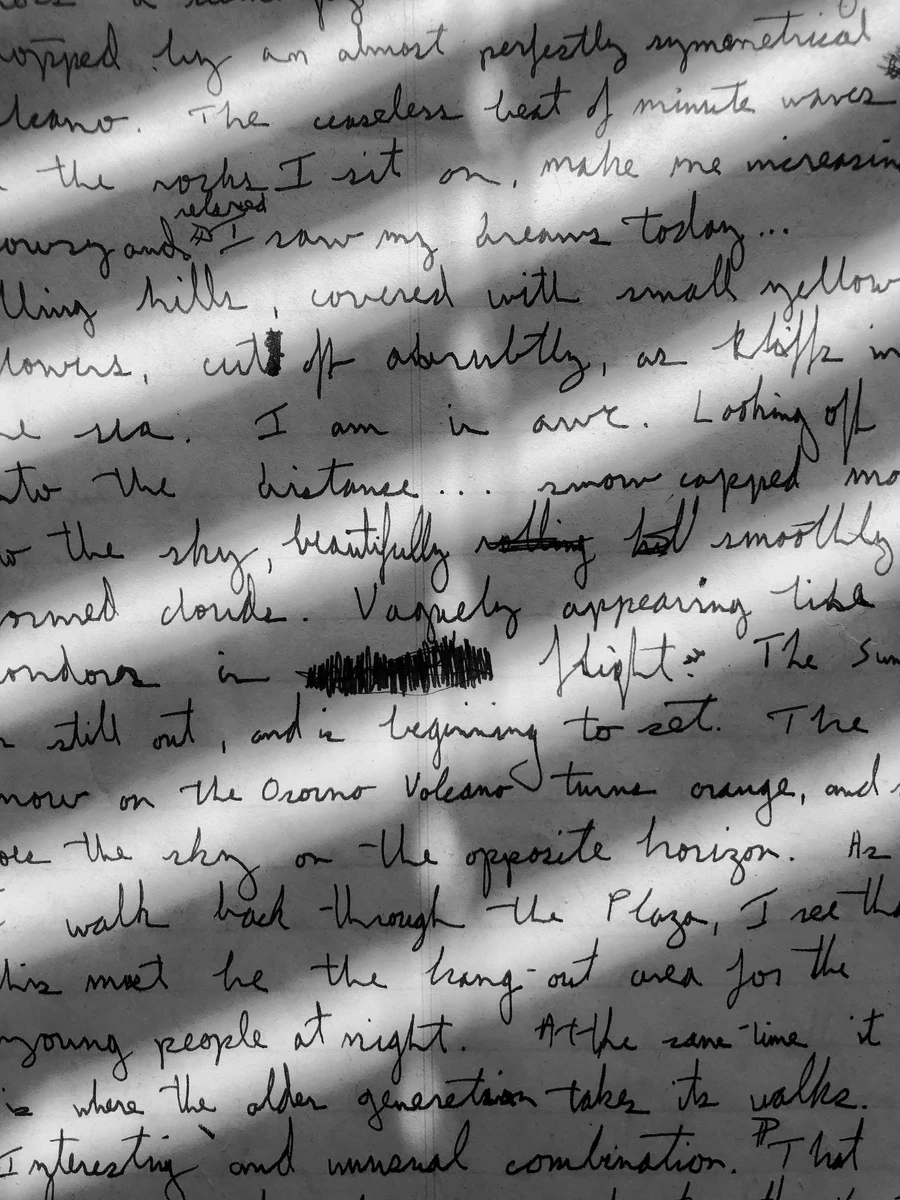 opped by an almost perfectly symmetrical
lcano. The ceaseless beat of minute waves
the rocks I sit on, make me increasin
owsy and relaxed I saw my dreams today...
lling hills, covered with small yellow
lowers, cut off abrubtly, as kliffs in
he sea. I am in awe. Looking off
nto the distance... snow capped mo
to the sky, beautifully rolling smoothly
ormed clouds. Vaguely appearing like
ondors in flight. The Sun
still out, and is beginning to set. The
now on the Osorno Volcano turns orange, and
oes the sky on the opposite horizon. As
I walk back through the Plaza, I see tha
his must be the hang-out area for the
young people at night. At the same time it
is where the older generation takes its walks.
Interesting and unusual combination. That